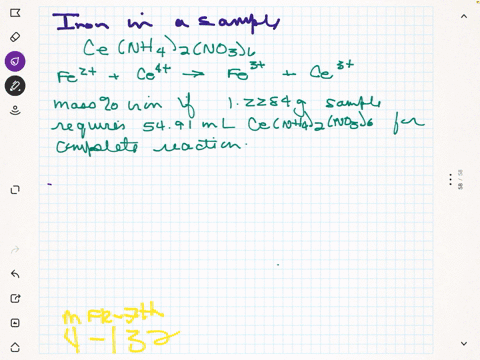 Iron in a sample
Ce(NH4)2(NO3)6
Fe2+ + Ce4+ → Fe3+ + Ce3+
mass% iron if 1.2284g sample
requires 54.91 mL Ce(NH4)2(NO3)6 for
complete reaction.
4-132
58 / 58